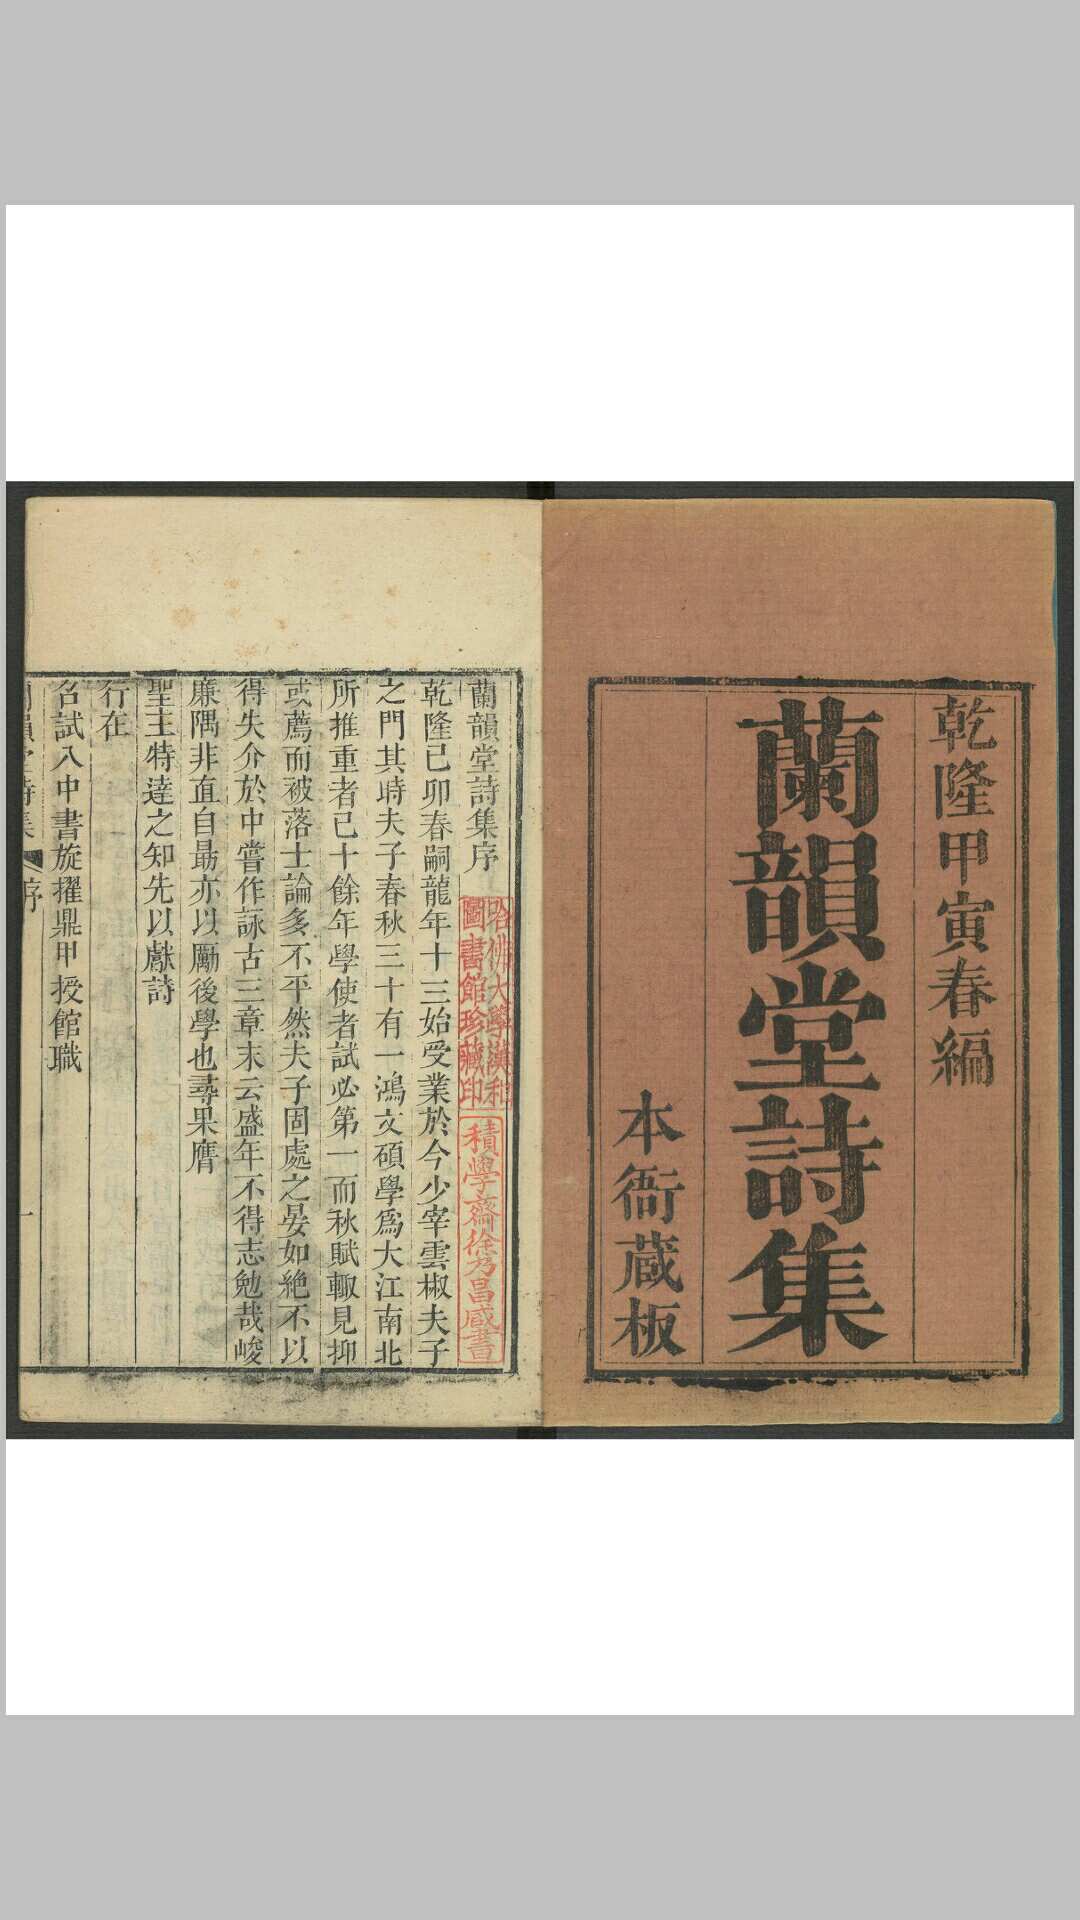 乾隆甲寅春編
蘭韻堂詩集
本衙蔵板
蘭韻堂詩集序
哈佛大學漢和
圖書館珍藏印
積學齋徐乃昌臧書
乾隆己卯春嗣龍年十三始受業於今少宰雲椒夫子
之門其時夫子春秋三十有一鴻文碩學爲大江南北
所推重者已十餘年學使者試必第一而秋賦輙見抑
或薦而被落士論多不平然夫子固處之晏如絶不以
得失介於中嘗作詠古三章末云盛年不得志勉哉峻
廉隅非直自勗亦以勵後學也尋果膺
聖主特達之知先以獻詩
行在
召試入中書旋擢鼎甲授館職
蘭韻堂詩集
序
一